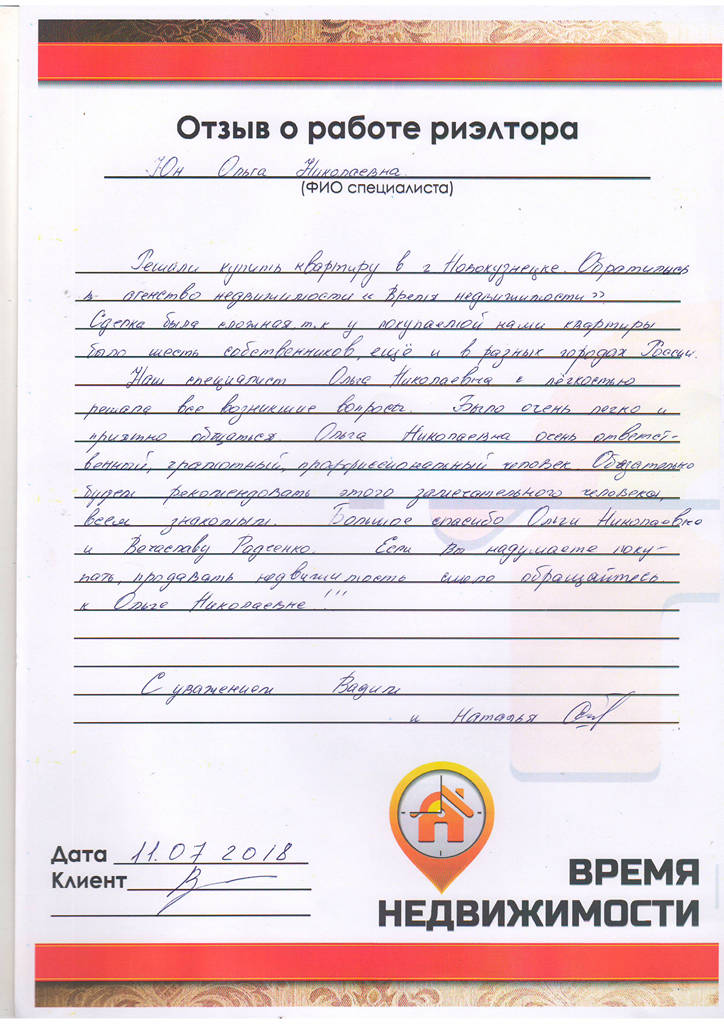 Отзыв о работе риэлтора
Юн Ольга Николаевна
(ФИО специалиста)
Решили купить квартиру в г Новокузнецке. Обратились
в агенство недвижимости « Время недвижимости ».
Сделка была сложная т.к у покупаемой нами квартиры
было шесть собственников, ещё и в разных городах России.
Наш специалист Ольга Николаевна с лёгкостью
решала все возникшие вопросы. Было очень легко и
приятно общаться. Ольга Николаевна очень ответст-
венный, грамотный, профессиональный человек. Обязательно
будем рекомендовать этого замечательного человека,
всем знакомым. Большое спасибо Ольги Николаевне
и Вячеславу Радченко. Если Вы надумаете поку-
пать, продавать недвижимость смело обращайтесь
к Ольге Николаевне!!!
С уважением Вадим
и Наталья
Дата 11.07 2018
Клиент
ВРЕМЯ
НЕДВИЖИМОСТИ